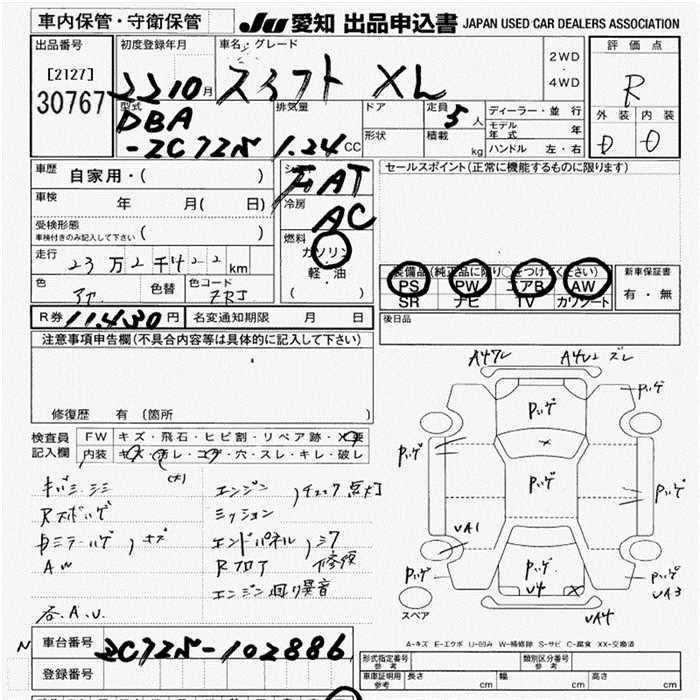 車内保管・守衛保管
JU 愛知 出品申込書 JAPAN USED CAR DEALERS ASSOCIATION
出品番号
[2127]
30767
初度登録年月
22 10月
車名・グレード
スイフト XL
2WD
・
4WD
評価点
R
外装 内装
D D
型式
DBA
-ZC72S
排気量
1.24 CC
ドア
形状
定員
5人
積載
kg
ディーラー・並行
モデル年式 年
ハンドル 左・右
車歴
自家用・( )
車検
年 月( 日)
受検形態
車検付きのみ記入して下さい ( )
走行
23万2千422km
色
色替
色コード
ZRJ
シフト
FAT
冷房
AC
燃料
ガソリン
軽・油
( )
セールスポイント(正常に機能するものに限ります)
装備品(純正品に限り○をつけてください)
PS PW エアB AW
SR ナビ TV カワシート
新車保証書
有・無
R券 11,430円
名変通知期限 月 日
後日品
注意事項申告欄(不具合内容等は具体的に記入して下さい)
修復歴 有(箇所 )
検査員
記入欄
FW キズ・飛石・ヒビ割・リペア跡・X要
内装 キズ・汚レ・コゲ・穴・スレ・キレ・破レ
(大)
エンジン
チェック点灯
ミッション
エンドパネル
Rフロア
修復
エンジン回り異音
AW
谷.A.U.
A47レ A4U2 ズレ
ハゲ
ハゲ
ハゲ
ハゲ
ハゲ
UA1
ハゲ
ハゲ
U4
ハゲ
UA3
UA4
スペア
A-キズ E-エクボ U-凹み W-補修跡 S-サビ C-腐食 XX-交換済
車台番号
ZC72S-102886
登録番号
形式指定番号
参考
類別区分番号
参考
車庫証明用
参考
長さ cm
幅 cm
高さ cm